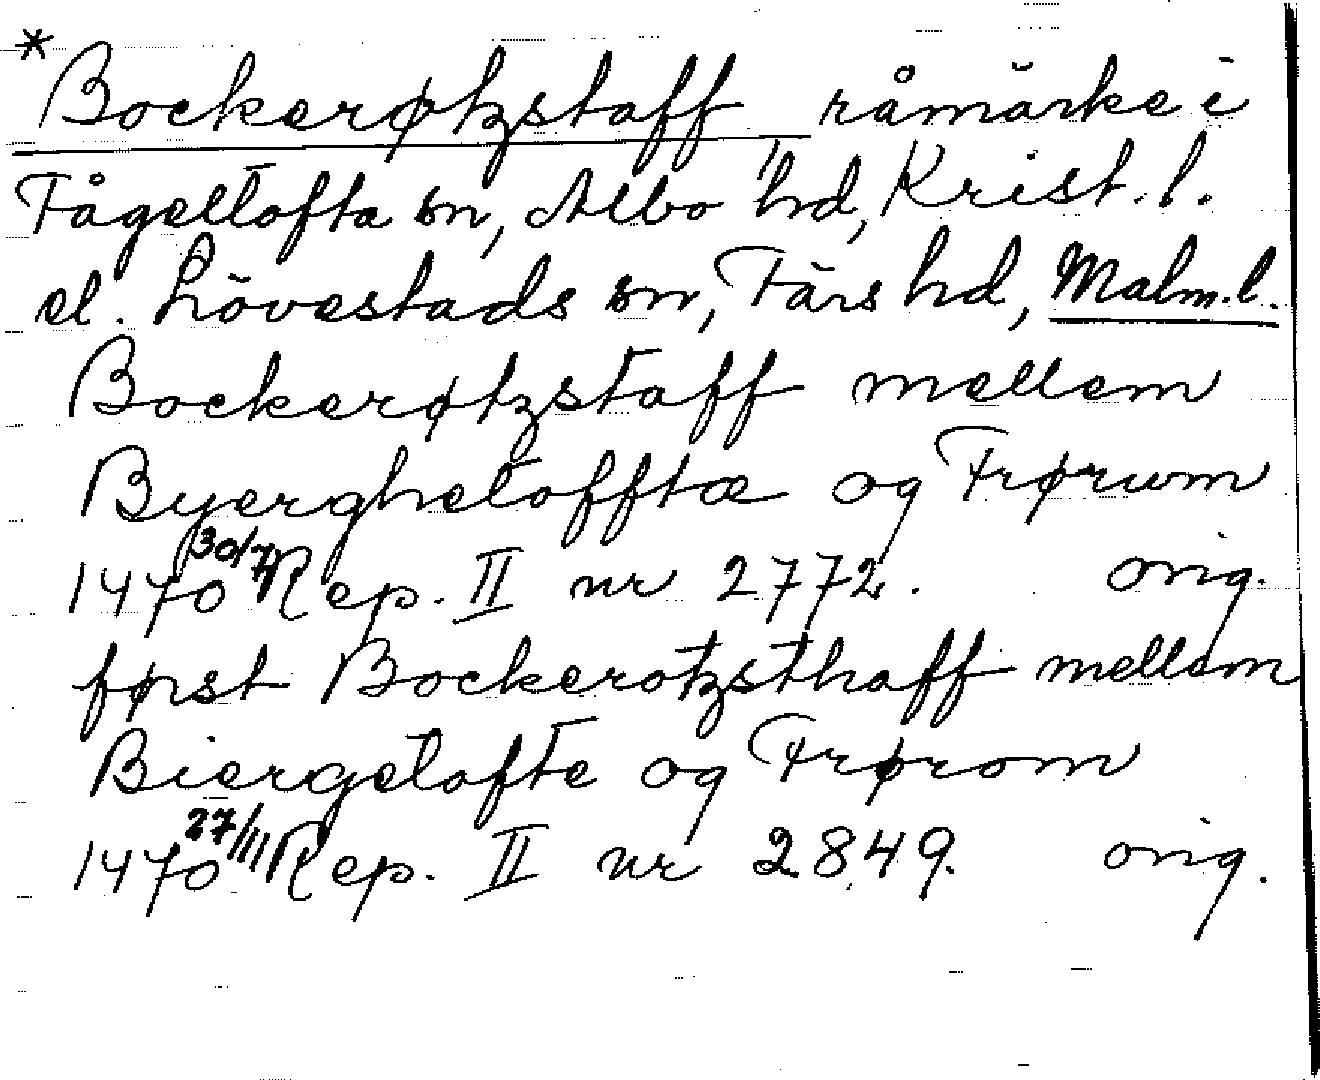 *Bockerøtzstaff, råmärke i
Fågeltofta sn, Albo hd, Krist. l.
el. Lövestads sn, Färs hd, Malm.l.
Bockerøtzstaff mellem
Byerghetofftæ og Frørum
1470 30/7 Rep. II nr 2772. orig.
først Bockerotzsthaff mellem
Biergetofte og Frørom
1470 27/11 Rep. II nr 2849. orig.